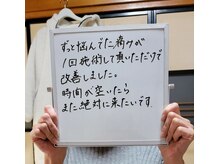 ずっと悩んでた痛みが
1回施術して頂いただけで
改善しました。
時間が空いたら
また絶対に来たいです